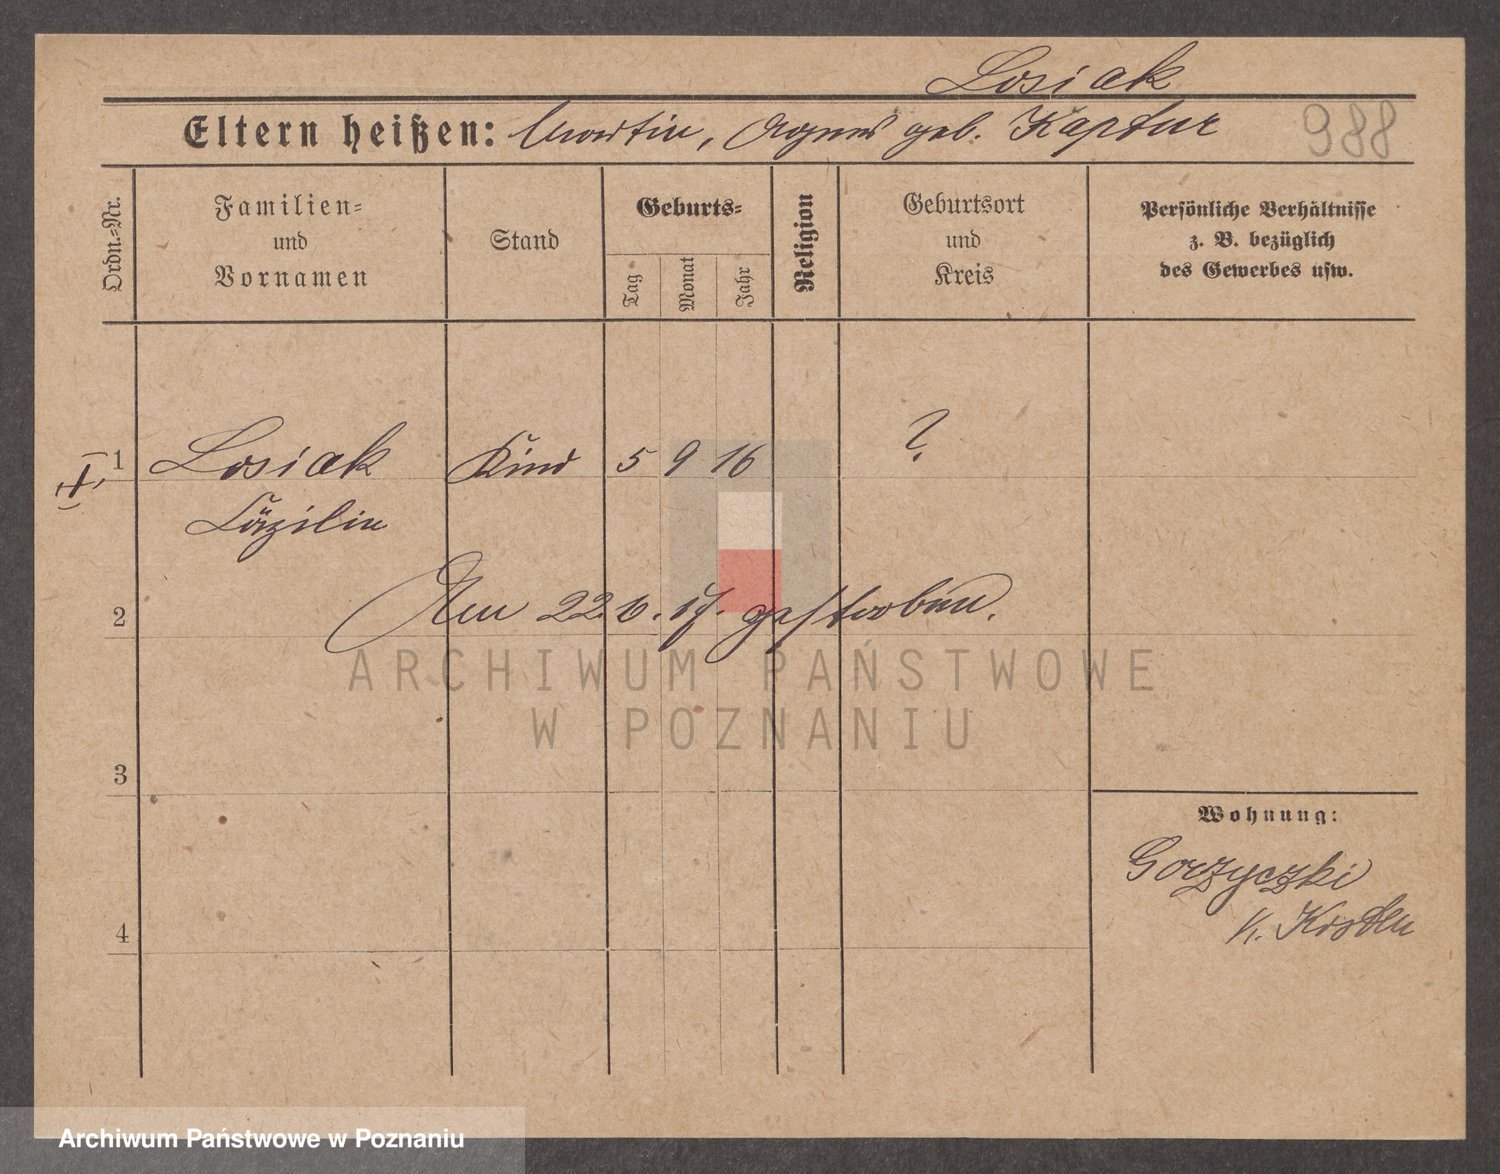 Losiak
Eltern heißen: Martin, Agnes geb. Kaptur
988
Ordn.=Nr.
Familien=
und
Vornamen
Stand
Geburts=
Tag
Monat
Jahr
Religion
Geburtsort
und
Kreis
Persönliche Verhältnisse
z. B. bezüglich
des Gewerbes usw.
1 Losiak Kind 5 9 16 ?
Cäzilie
2 Am 22.6.17. gestorben.
ARCHIWUM PAŃSTWOWE
W POZNANIU
3
Wohnung:
Gorzyczki
K. Kosten
4
Archiwum Państwowe w Poznaniu